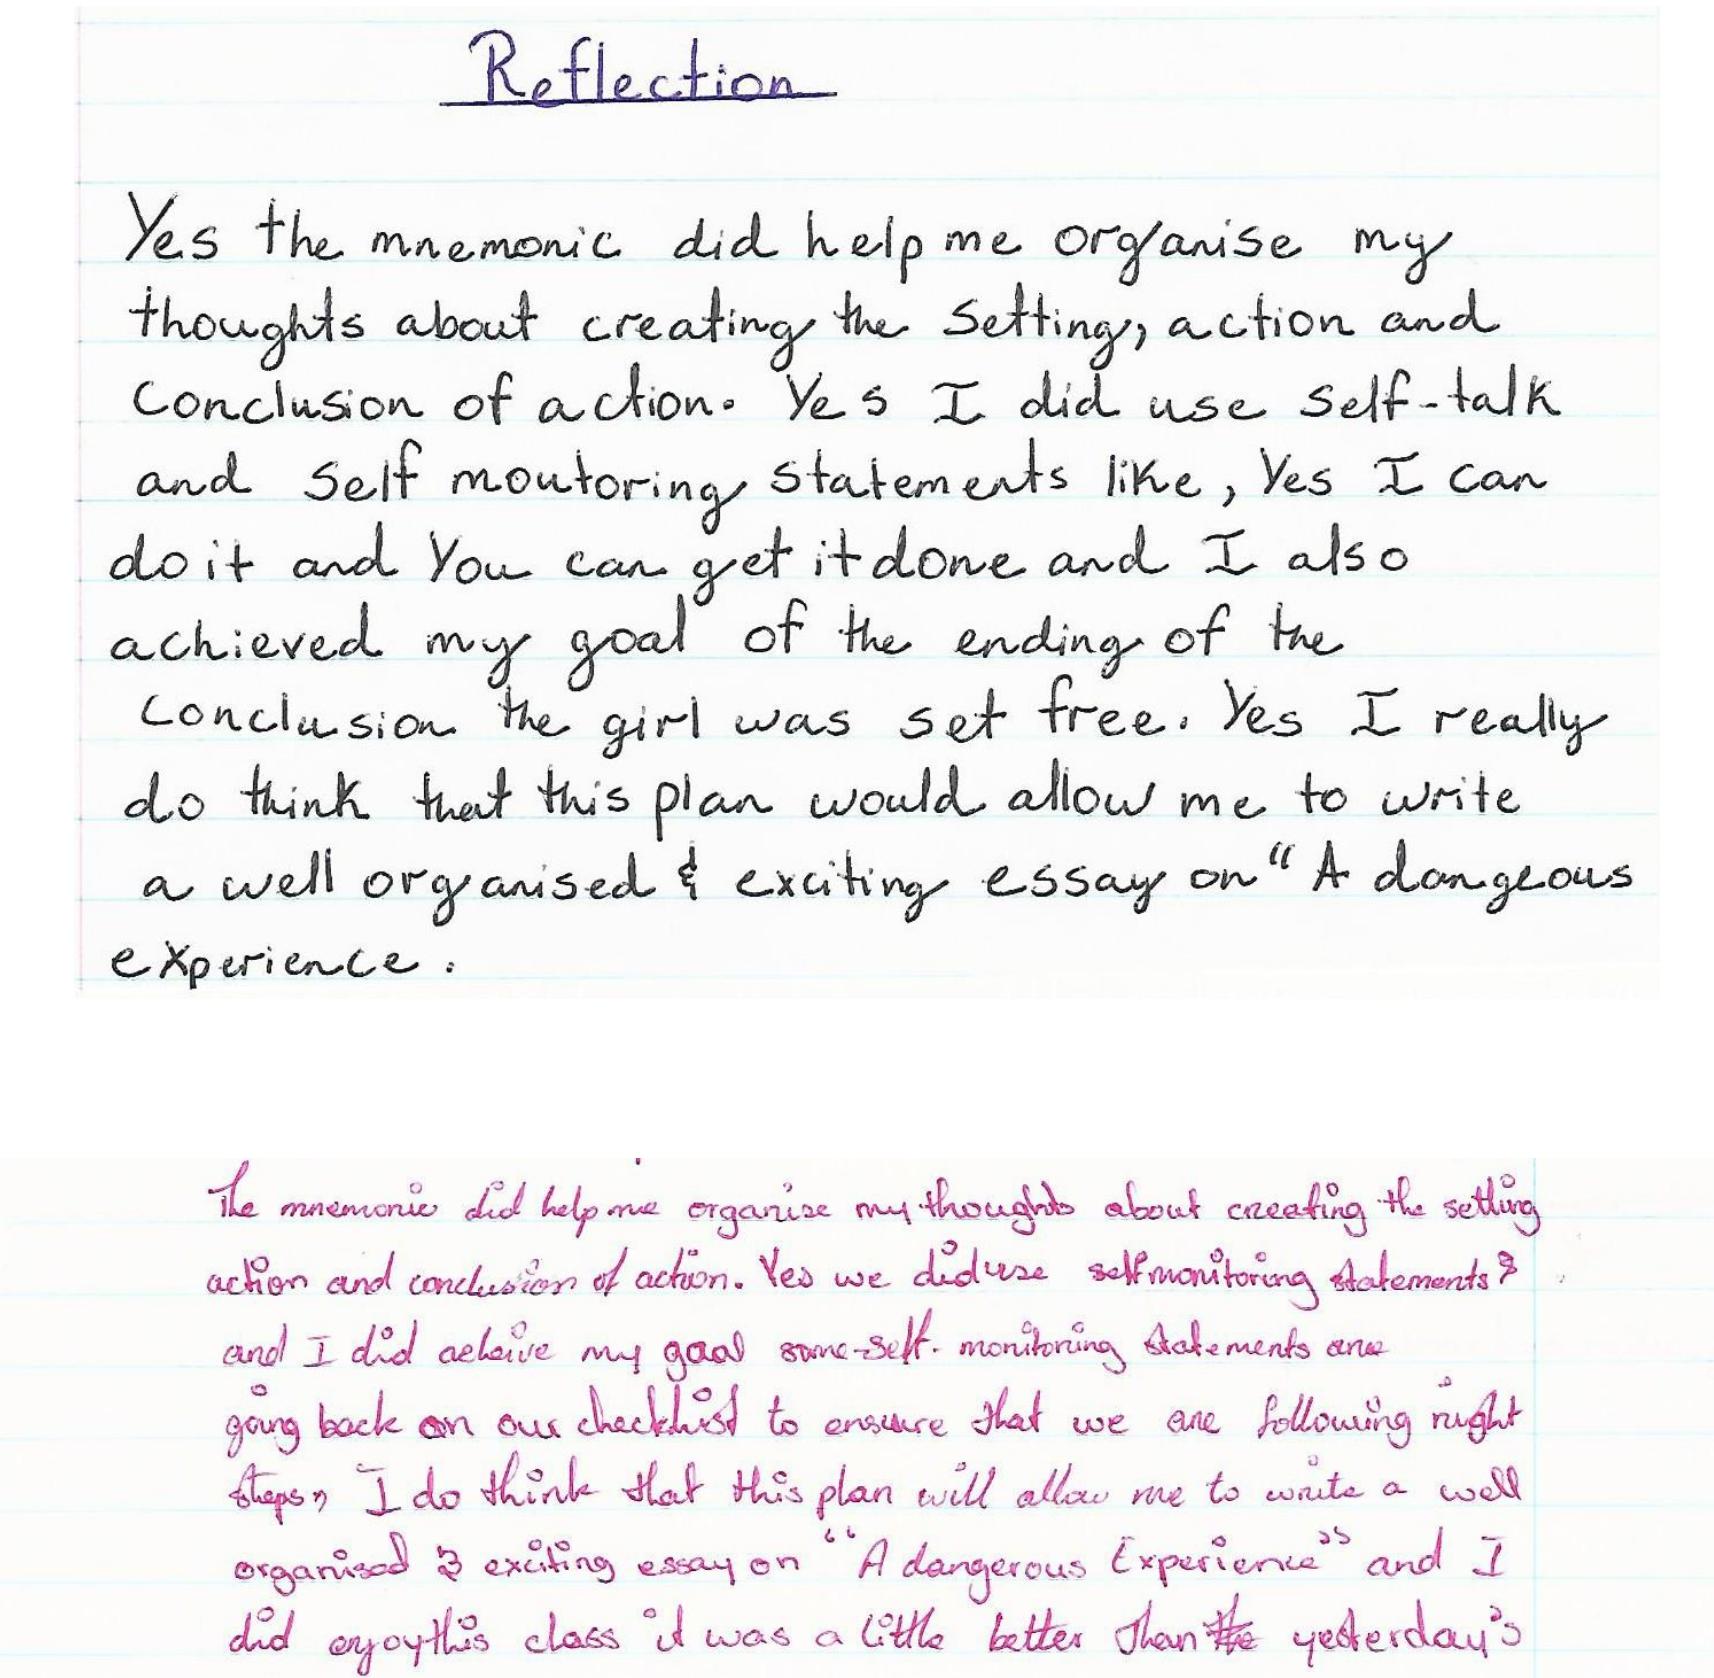 Reflection
Yes the mnemonic did help me organise my
thoughts about creating the setting, action and
conclusion of action. Yes I did use self-talk
and self moutoring statements like, Yes I can
do it and You can get it done and I also
achieved my goal of the ending of the
conclusion the girl was set free. Yes I really
do think that this plan would allow me to write
a well organised & exciting essay on "A dangeous
experience.
The mnemonic did help me organise my thoughts about creating the setting
action and conclusion of action. Yes we did use self monitoring statements &
and I did acheive my goal some-self-monitoring statements are
going back on our checklist to ensure that we are following right
steps, I do think that this plan will allow me to write a well
organised & exciting essay on "A dangerous Experience" and I
did enjoy this class it was a little better than the yesterday's